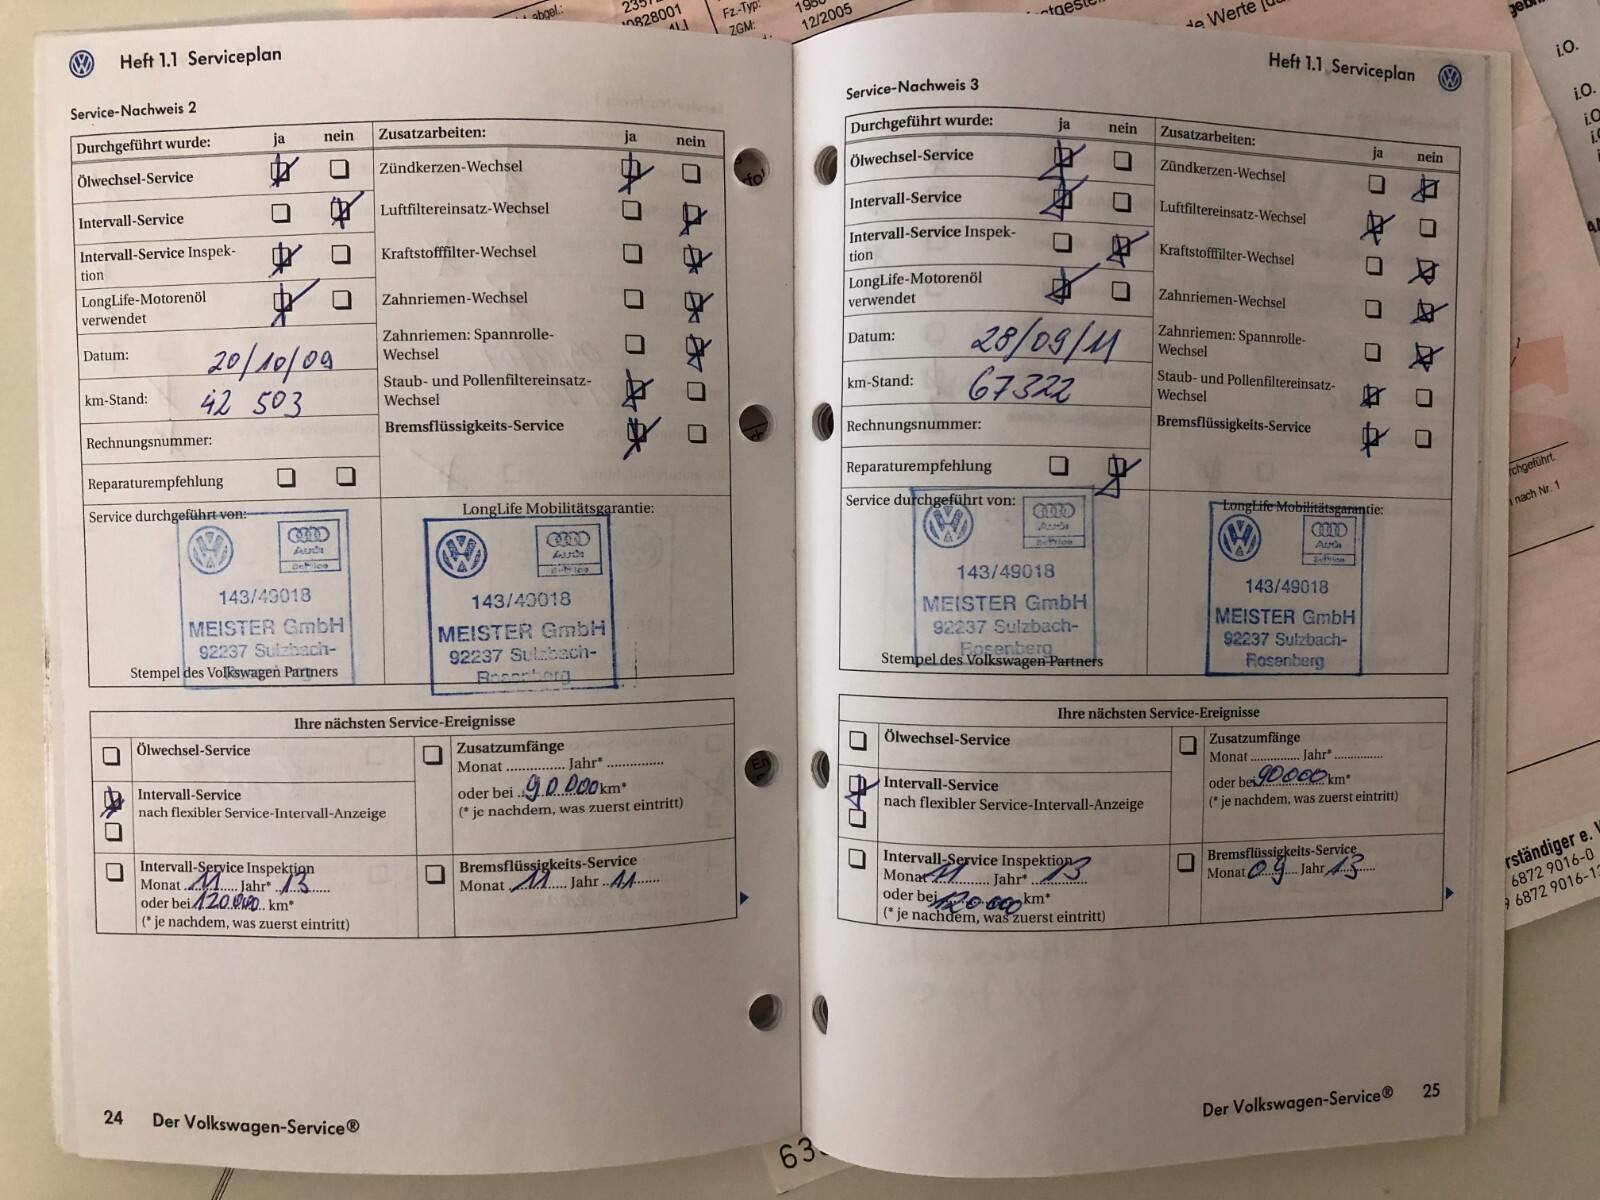 Fz.-Typ:
ZGM:
12/2005
i.O.
i.O.
Heft 1.1 Serviceplan
Service-Nachweis 2
Durchgeführt wurde: ja nein
Ölwechsel-Service
Intervall-Service
Intervall-Service Inspek-
tion
LongLife-Motorenöl
verwendet
Datum: 20/10/09
km-Stand: 42 503
Rechnungsnummer:
Reparaturempfehlung
Zusatzarbeiten: ja nein
Zündkerzen-Wechsel
Luftfiltereinsatz-Wechsel
Kraftstofffilter-Wechsel
Zahnriemen-Wechsel
Zahnriemen: Spannrolle-
Wechsel
Staub- und Pollenfiltereinsatz-
Wechsel
Bremsflüssigkeits-Service
Service durchgeführt von:
Audi
Service
143/49018
MEISTER GmbH
92237 Sulzbach-
Rosenberg
Stempel des Volkswagen Partners
LongLife Mobilitätsgarantie:
Audi
Service
143/49018
MEISTER GmbH
92237 Sulzbach-
Rosenberg
Ihre nächsten Service-Ereignisse
Ölwechsel-Service
Intervall-Service
nach flexibler Service-Intervall-Anzeige
Intervall-Service Inspektion
Monat 11 Jahr* 13
oder bei 120000 km*
(* je nachdem, was zuerst eintritt)
Zusatzumfänge
Monat .............. Jahr* ..............
oder bei 90000 km*
(* je nachdem, was zuerst eintritt)
Bremsflüssigkeits-Service
Monat 11 Jahr 11
24 Der Volkswagen-Service®
Heft 1.1 Serviceplan
Service-Nachweis 3
Durchgeführt wurde: ja nein
Ölwechsel-Service
Intervall-Service
Intervall-Service Inspek-
tion
LongLife-Motorenöl
verwendet
Datum: 28/09/11
km-Stand: 67322
Rechnungsnummer:
Reparaturempfehlung
Zusatzarbeiten: ja nein
Zündkerzen-Wechsel
Luftfiltereinsatz-Wechsel
Kraftstofffilter-Wechsel
Zahnriemen-Wechsel
Zahnriemen: Spannrolle-
Wechsel
Staub- und Pollenfiltereinsatz-
Wechsel
Bremsflüssigkeits-Service
Service durchgeführt von:
Audi
Service
143/49018
MEISTER GmbH
92237 Sulzbach-
Rosenberg
Stempel des Volkswagen Partners
LongLife Mobilitätsgarantie:
Audi
Service
143/49018
MEISTER GmbH
92237 Sulzbach-
Rosenberg
Ihre nächsten Service-Ereignisse
Ölwechsel-Service
Intervall-Service
nach flexibler Service-Intervall-Anzeige
Intervall-Service Inspektion
Monat 11 Jahr* 13
oder bei 120000 km*
(* je nachdem, was zuerst eintritt)
Zusatzumfänge
Monat .............. Jahr* ..............
oder bei 90000 km*
(* je nachdem, was zuerst eintritt)
Bremsflüssigkeits-Service
Monat 09 Jahr 13
Der Volkswagen-Service® 25
nach Nr. 1
6872 9016-0